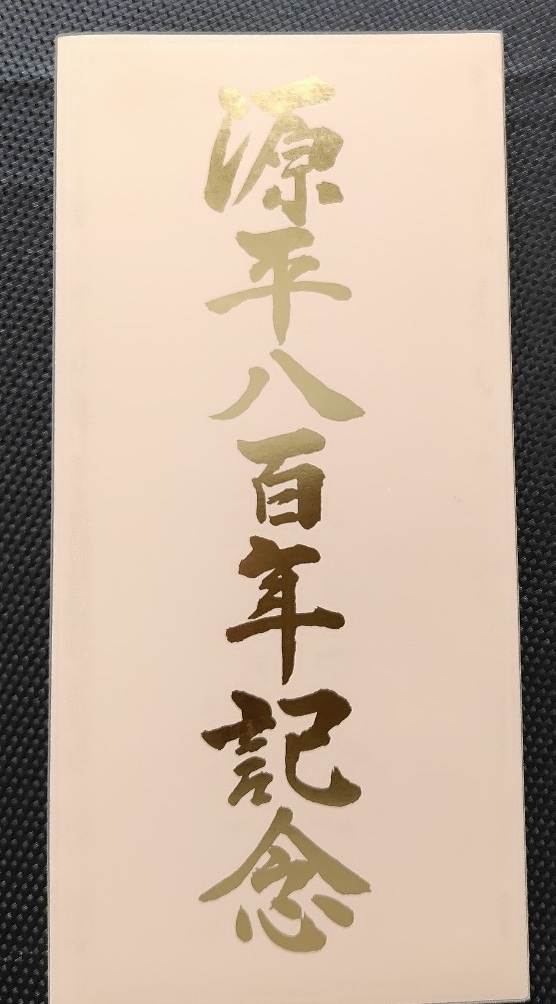 源平八百年記念